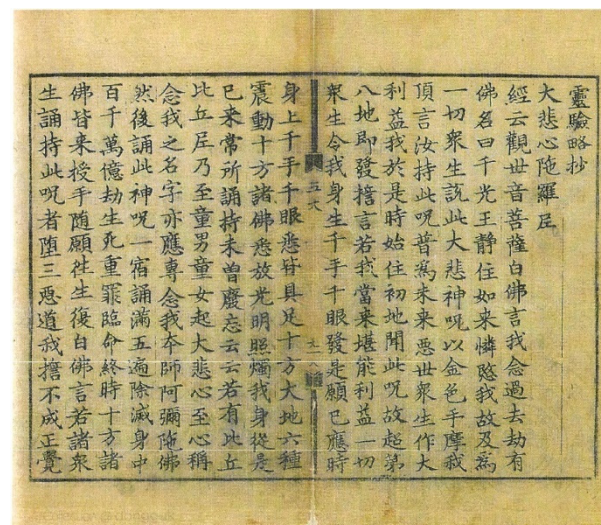 靈驗略抄
大悲心陁羅尼
經云觀世音菩薩白佛言我念過去劫有
佛名曰千光王静住如来憐愍我故及爲
一切衆生說此大悲神呪以金色手摩我
頂言汝持此呪普爲未来悪世衆生作大
利益我於是時始住初地聞此呪故超第
八地即發擔言若我當来堪能利益一切
衆生令我身生千手千眼發是願已應時
五大
身上千手千眼悉皆具足十方大地六種
震動十方諸佛悉放光明照燭我身從是
已来常所誦持未曾廢忘云云若有比丘
比丘尼乃至童男童女起大悲心至心稱
念我之名字亦應專念我本師阿彌陁佛
然後誦此神呪一宿誦滿五遍除滅身中
百千萬億劫生死重罪臨命終時十方諸
佛皆来授手随願徃生復白佛言若諸衆
生誦持此呪者堕三悪道我擔不成正覺